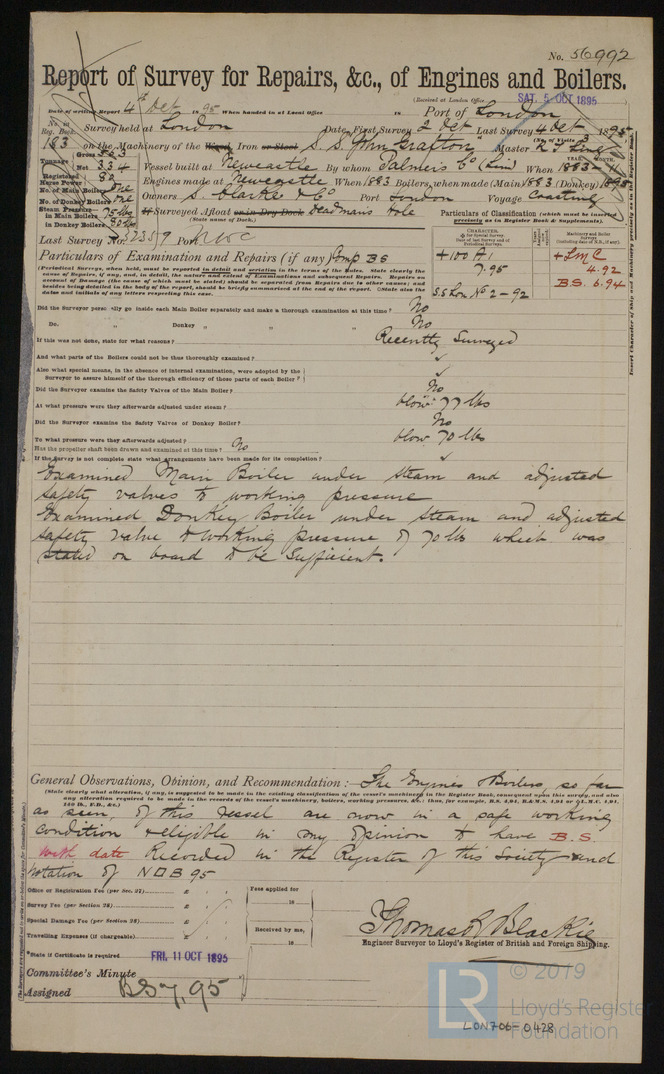 No. 56992
Report of Survey for Repairs, &c., of Engines and Boilers.
(Received at London Office SAT. 5 OCT 1895
Date of writing Report 4th Oct 1895 When handed in at Local Office 18 Port of London
No. in Reg. Book. 183
Survey held at London Date, First Survey 2 Oct Last Survey 4 Oct 1895
(No. of Visits 3)
on the Machinery of the Wood, Iron or Steel S.S. John Grafton Master
Tonnage Gross 563 Net 334
Vessel built at Newcastle By whom Palmers Co (Lim) When 1883
YEAR. MONTH.
Registered Horse Power 82
Engines made at Newcastle When 1883 Boilers, when made (Main) 1883 (Donkey) 1895
No. of Main Boilers One
No. of Donkey Boilers One
Owners S. Clarke & Co Port London Voyage Coasting
Steam Pressure in Main Boilers 75 lbs
in Donkey Boilers 80 lbs
If Surveyed Afloat or in Dry Dock Deadmans Hole
(State name of Dock.)
Particulars of Classification (which must be inserted precisely as in Register Book & Supplements).
Last Survey No. 32359 Port NWC
CHARACTER.
for Special Survey
Date of last Survey and of Periodical Surveys
Machinery and Boiler Surveys
(including date of N.B., if any).
Particulars of Examination and Repairs (if any) Comp BS
+ 100 A1
7.95
+ LMC
4.92
B.S. 6.94
S.S. Lon No 2 - 92
(Periodical Surveys, when held, must be reported in detail and seriatim in the terms of the Rules. State clearly the
cause of Repairs, if any, and, in detail, the nature and extent of Examinations and subsequent Repairs. Repairs on
account of Damage (the cause of which must be stated) should be separated from Repairs due to other causes; and
besides being detailed in the body of the report, should be briefly summarised at the end of the report. State also the
dates and initials of any letters respecting this case.
Did the Surveyor personally go inside each Main Boiler separately and make a thorough examination at this time? No
Do. „ Donkey „ „ „ No
If this was not done, state for what reasons? Recently Surveyed
And what parts of the Boilers could not be thus thoroughly examined?
Also what special means, in the absence of internal examination, were adopted by the
Surveyor to assure himself of the thorough efficiency of those parts of each Boiler?
Did the Surveyor examine the Safety Valves of the Main Boiler? No
At what pressure were they afterwards adjusted under steam? blow 77 lbs
Did the Surveyor examine the Safety Valves of Donkey Boiler? No
To what pressure were they afterwards adjusted? blow 70 lbs
Has the propeller shaft been drawn and examined at this time? No
If the Survey is not complete state what arrangements have been made for its completion?
Examined Main Boiler under steam and adjusted
safety valves to working pressure
Examined Donkey Boiler under steam and adjusted
safety valve to working pressure of 70 lbs which was
stated on board to be sufficient.
General Observations, Opinion, and Recommendation :— The Engines & Boilers, so far
(State clearly what alteration, if any, is suggested to be made in the existing classification of the vessel's machinery in the Register Book, consequent upon this survey, and also
any alteration required to be made in the records of the vessel's machinery, boilers, working pressures, &c.: thus, for example, B.S. 4.94, B.&M.S. 4.94 or L.M.C. 4.94,
160 lb., F.D., &c.)
as seen, of this vessel are now in a safe working
condition & eligible in my opinion to have B.S.
with date Recorded in the Register of this Society and
notation of NDB 95
Office or Registration Fee (per Sec. 27) £ : :
Survey Fee (per Section 28) £ : :
Special Damage Fee (per Section 28) £ : :
Travelling Expenses (if chargeable) £ : :
Fees applied for
18
Received by me,
18
Thomas R Blackie
Engineer Surveyor to Lloyd's Register of British and Foreign Shipping.
State if Certificate is required
Committee's Minute FRI. 11 OCT 1895
Assigned BS 7,95
Insert Character of Ship and Machinery precisely as in the Register Book.
© 2019
LR
Lloyd's Register
Foundation
LON706-0428